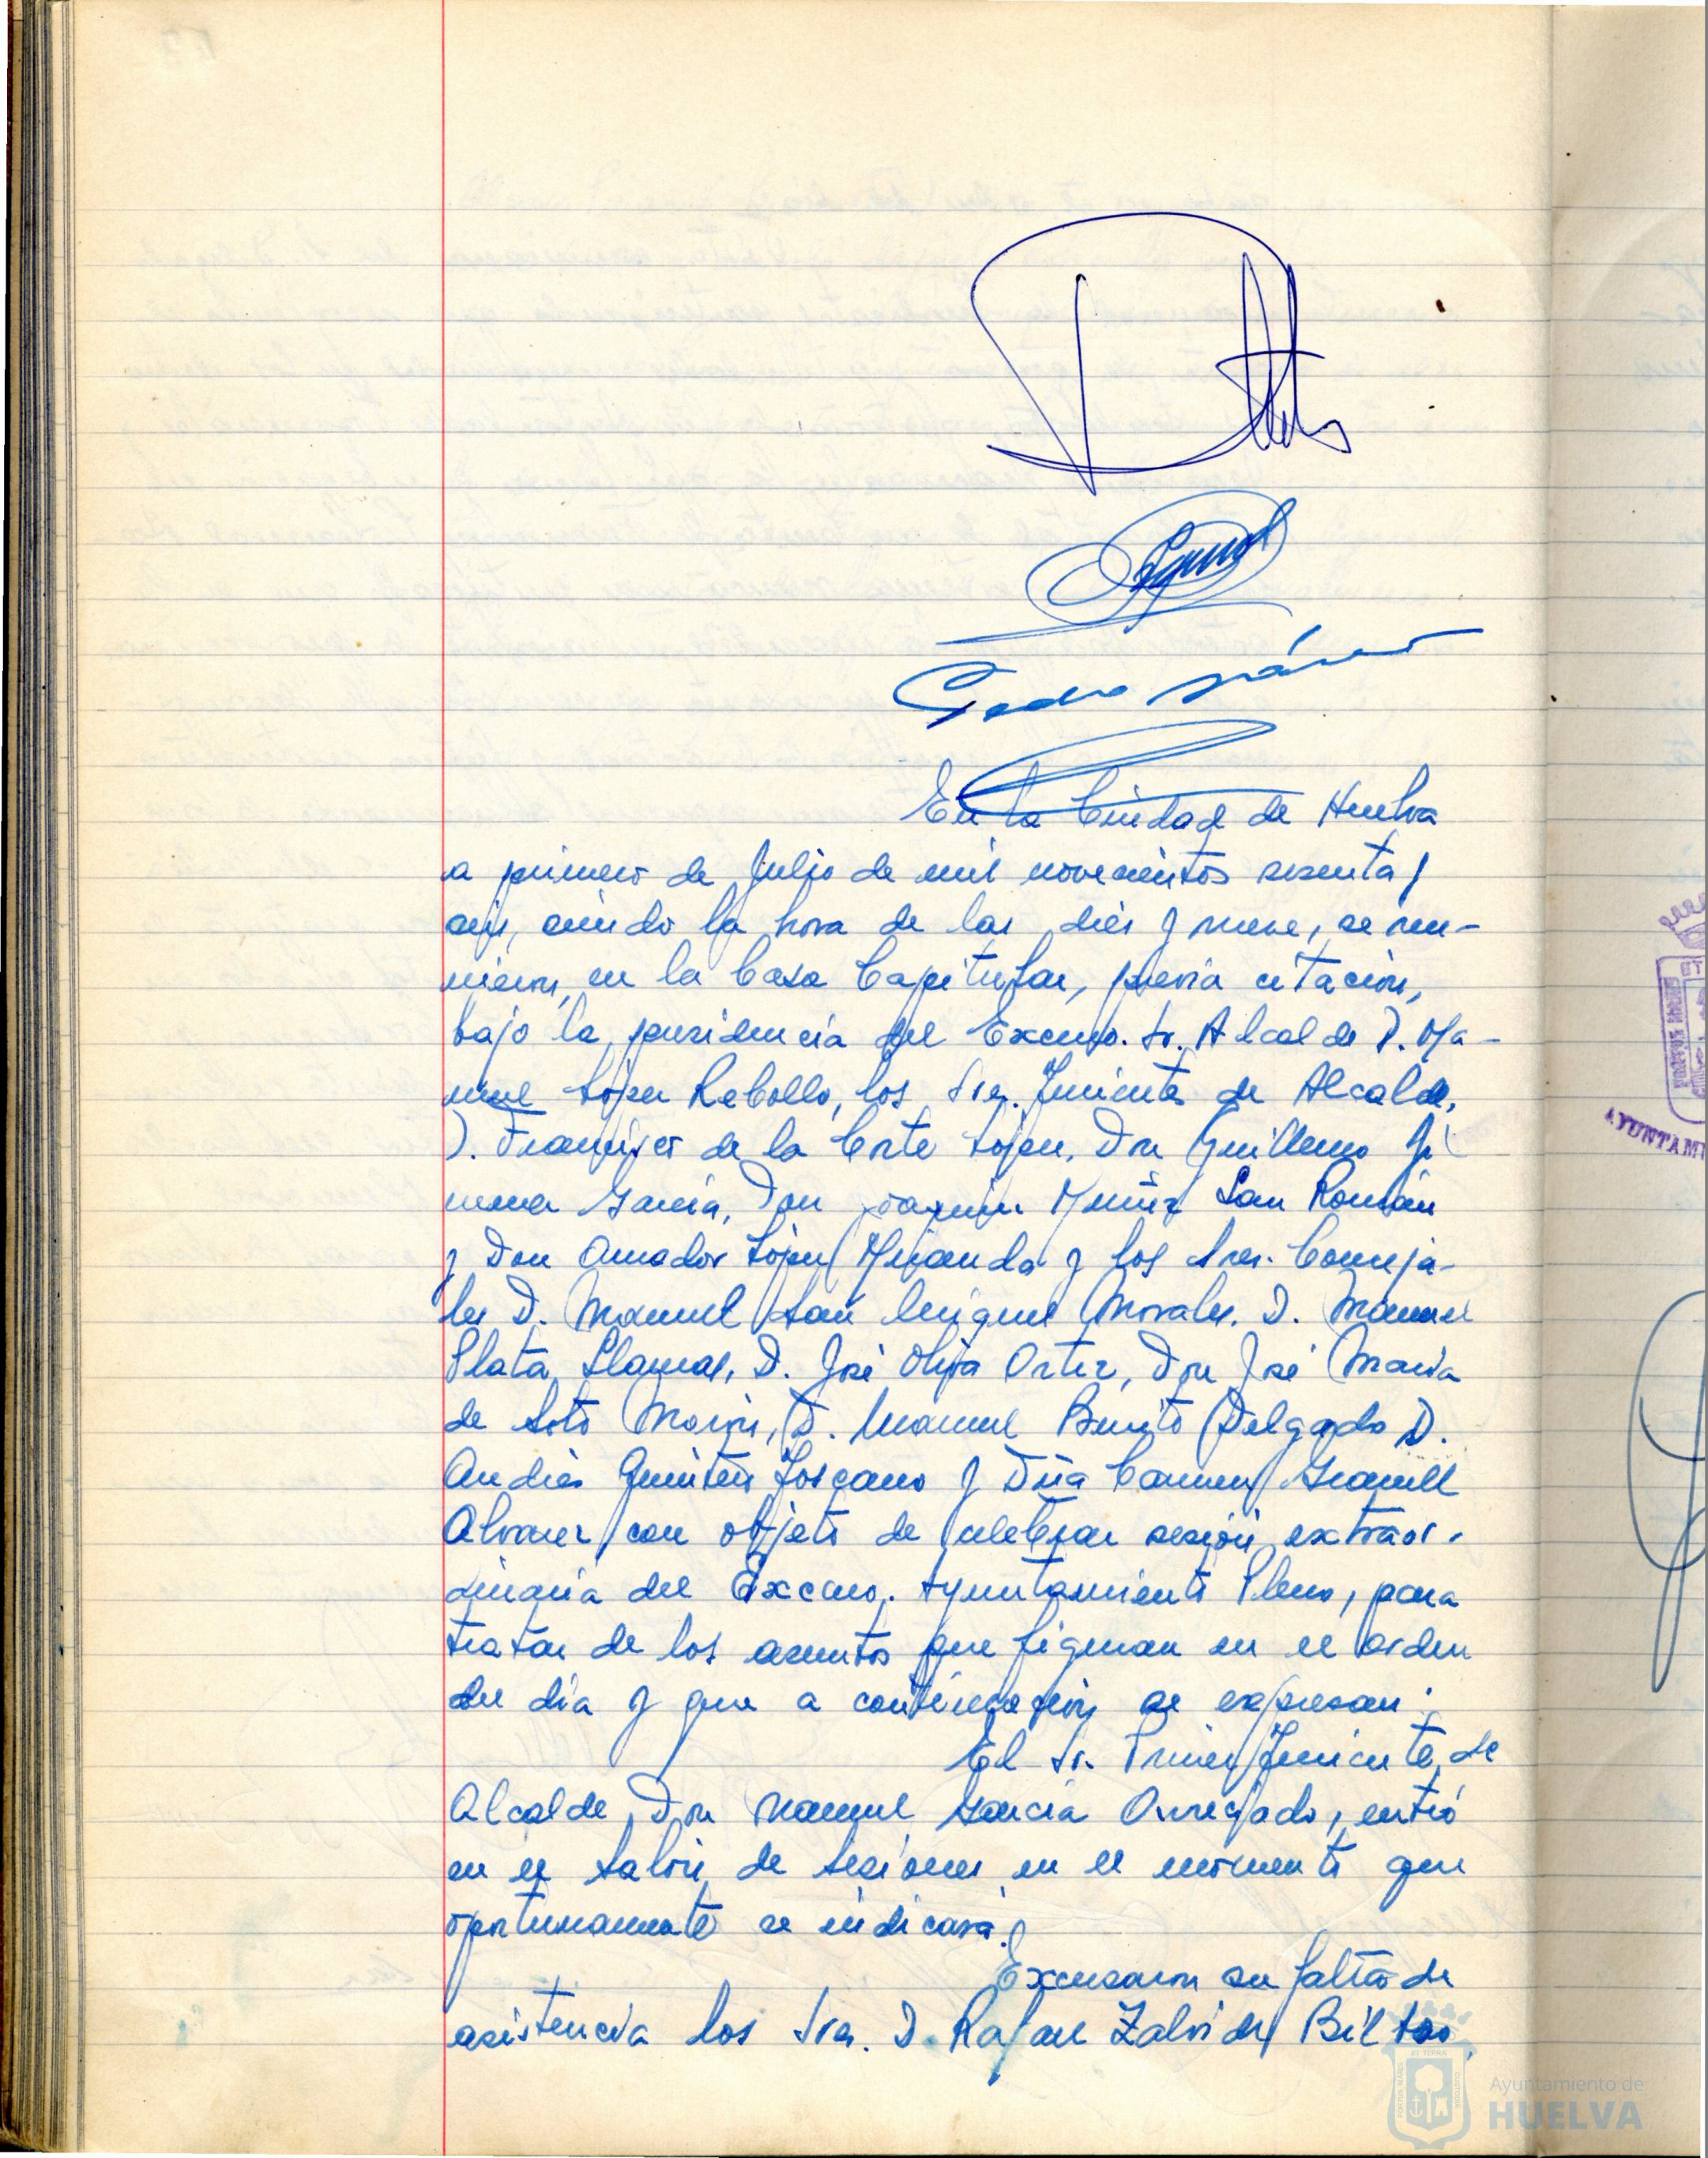 Pedro
En la Ciudad de Huelva
a primero de Julio de mil novecientos sesenta y
seis, siendo la hora de las diez y nueve, se reu-
nieron, en la Casa Capitular, previa citación,
bajo la presidencia del Excmo. Sr. Alcalde D. Ma-
nuel López Rebollo, los Sres. Tenientes de Alcalde,
D. Francisco de la Corte López, Don Guillermo Ji
menez García, Don Joaquín Muñiz San Román
y Don Amador López Miranda y los Sres. Conceja-
les D. Manuel San Miguel Morales, D. Manuel
Plata Llamas, D. José Oliva Ortiz, Don José María
de Soto Morón, D. Manuel Benito Delgado D.
Andrés Quintero Toscano y Dña Carmen Granell
Alvarez con objeto de celebrar sesión extraor-
dinaria del Excmo. Ayuntamiento Pleno, para
tratar de los asuntos que figuran en el orden
del día y que a continuación se expresan.
El Sr. Primer Teniente de
Alcalde, Don Manuel García Orregado, entró
en el Salón de Sesiones en el momento que
oportunamente se indicará.
Excusaron su falta de
asistencia los Sres. D. Rafael Zalvide Bilbao,
AYUNTAM
Ayuntamiento de
HUELVA